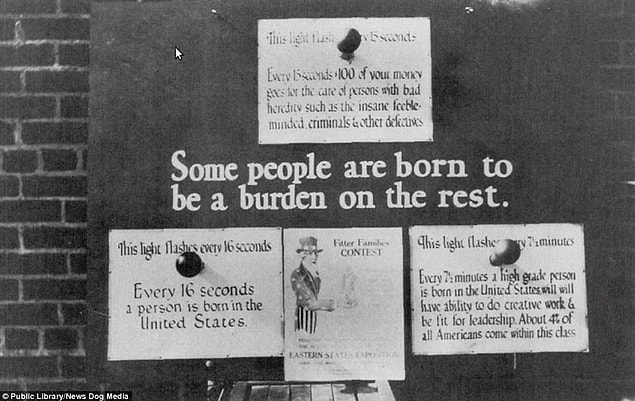 This light flash y 15 seconds
Every 15 seconds $100 of your money
goes for the care of persons with bad
heredity such as the insane feeble-
minded, criminals & other defectives
Some people are born to
be a burden on the rest.
This light flashes every 16 seconds
Every 16 seconds
a person is born in the
United States.
Fitter Families
CONTEST
EASTERN STATES EXPOSITION
This light flashes ry 7½ minutes
Every 7½ minutes a high grade person
is born in the United States, will will
have ability to do creative work &
be fit for leadership. About 4% of
all Americans come within this class
© Public Library/News Dog Media